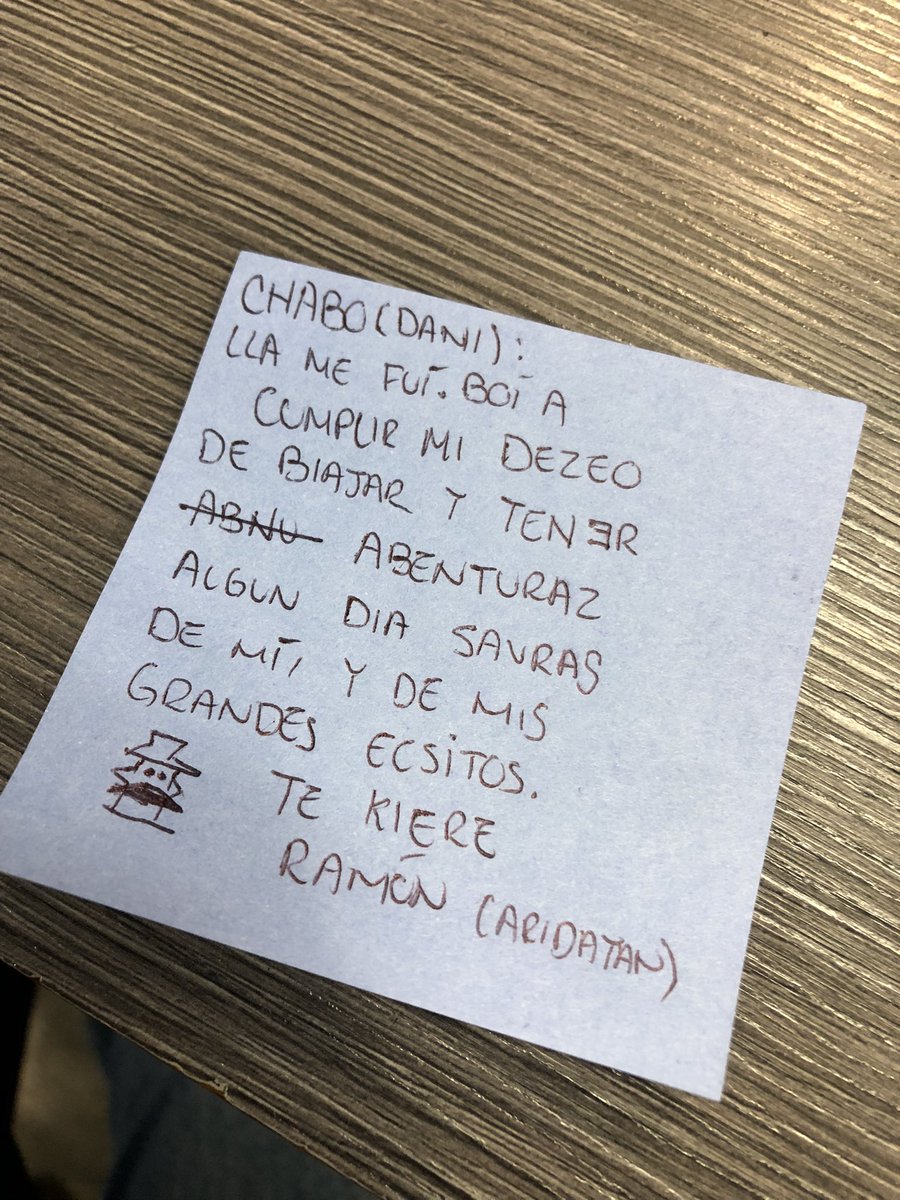 CHABO(DANI):
LLA ME FUÍ. BOÍ A
CUMPLIR MI DEZEO
DE BIAJAR Y TENER
ABNU ABENTURAZ
ALGUN DIA SAVRAS
DE MÍ, Y DE MIS
GRANDES ECSITOS.
TE KIERE
RAMÓN (ARIDATAN)